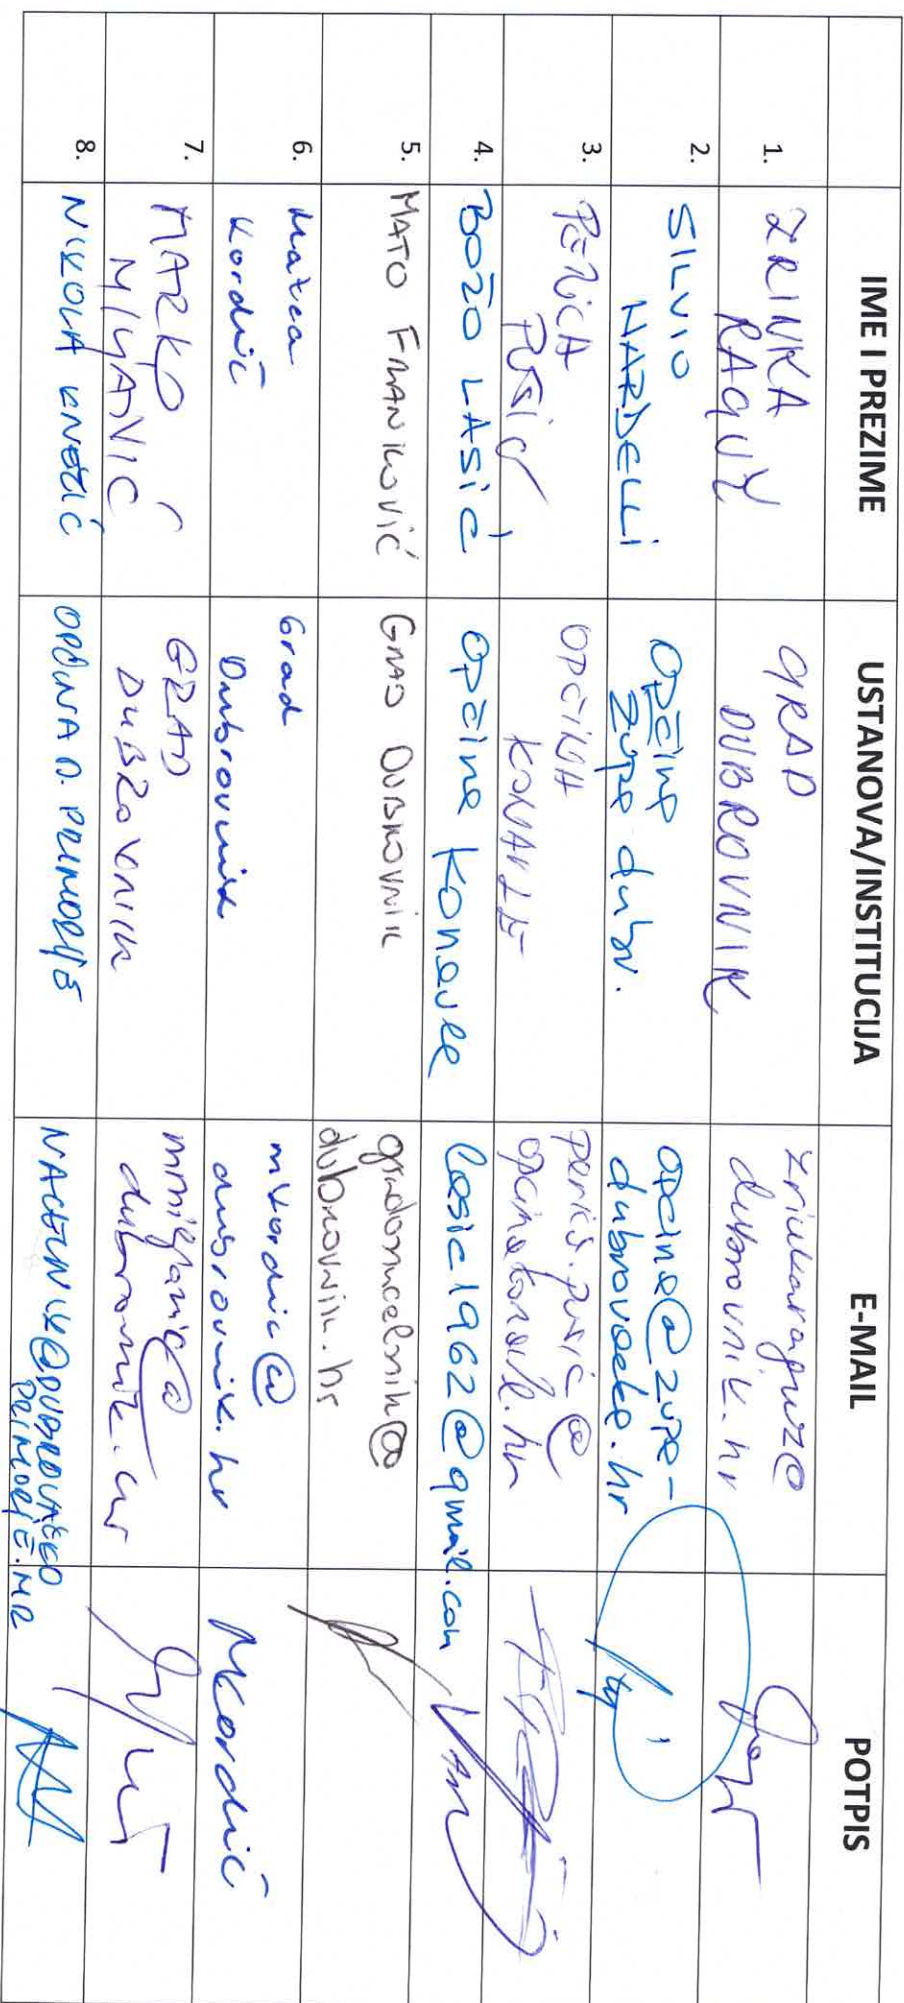 IME I PREZIME USTANOVA/INSTITUCIJA E-MAIL POTPIS
1. ZRINKA RAGUŽ GRAD DUBROVNIK zrinkaraguz@dubrovnik.hr
2. SILVIO NARDELLI Općina Župa dubr. opcina@zupa-dubrovacka.hr
3. PERICA PUŠIĆ OPĆINA KONAVLE perica.pusic@opcinakonavle.hr
4. BOŽO LASIĆ Općina Konavle lasic1962@gmail.com
5. MATO FRANKOVIĆ GRAD DUBROVNIK gradonacelnik@dubrovnik.hr
6. Matea Kordić Grad Dubrovnik mkordic@dubrovnik.hr MKordić
7. MARKO MILJANIĆ GRAD DUBROVNIK mmiljanic@dubrovnik.hr
8. NIKOLA KNEŽIĆ OPĆINA D. PRIMORJE NACELNIK@DUBROVACKOPRIMORJE.HR